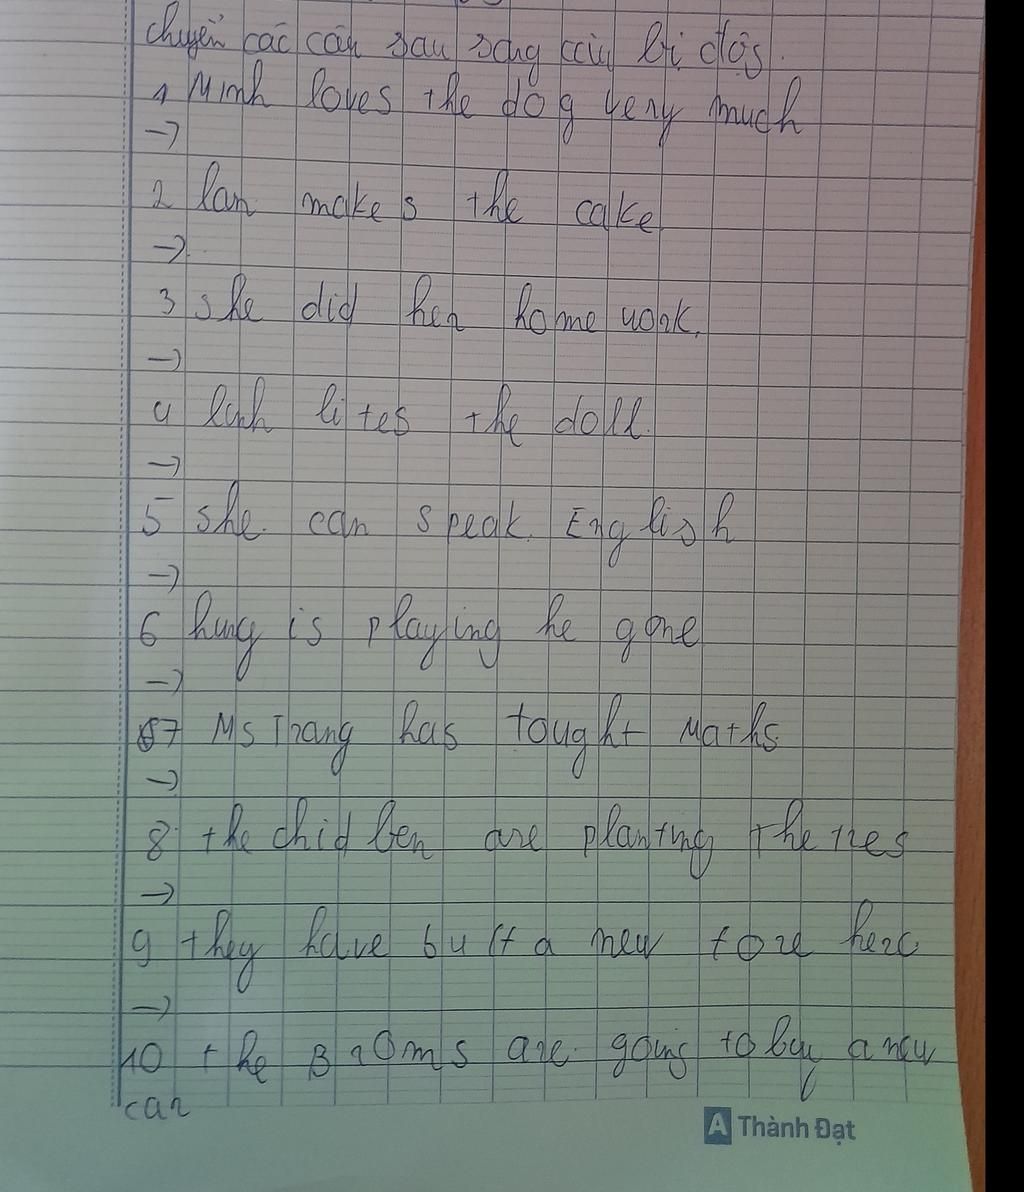 chuyển các câu sau sang câu bị động.
1 Minh loves the dog very much
→
2 lan makes the cake
→
3 she did her home work.
→
4 lanh lites the doll.
→
5 she can speak English
→
6 hung is playing he gone
→
7 Ms Trang has tought Maths
→
8 the chid ben are planting the tres
→
9 they have built a new tore here
→
10 the Browns are going to buy a new
car
A Thành Đạt